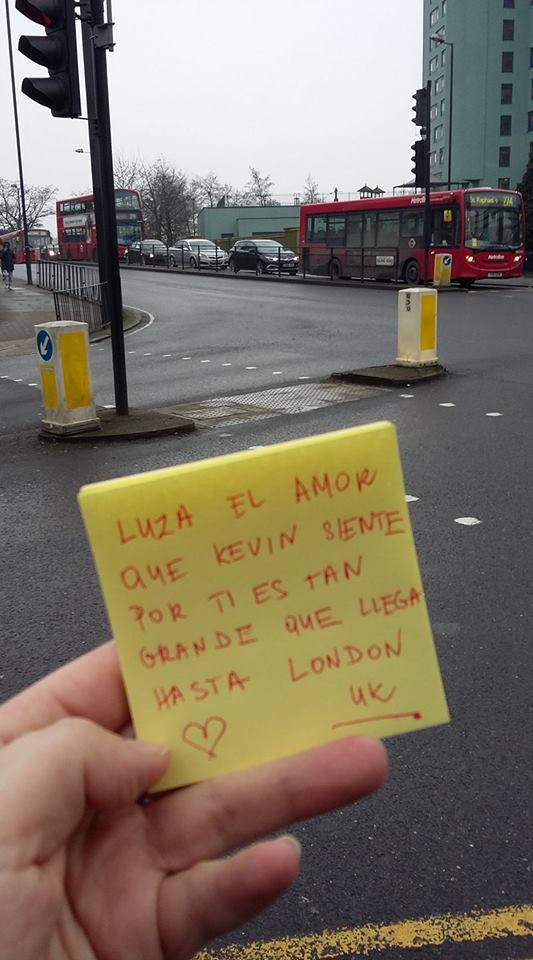 St Raphael's 224
Metroline
LUZA EL AMOR
QUE KEVIN SIENTE
POR TI ES TAN
GRANDE QUE LLEGA
HASTA LONDON
UK